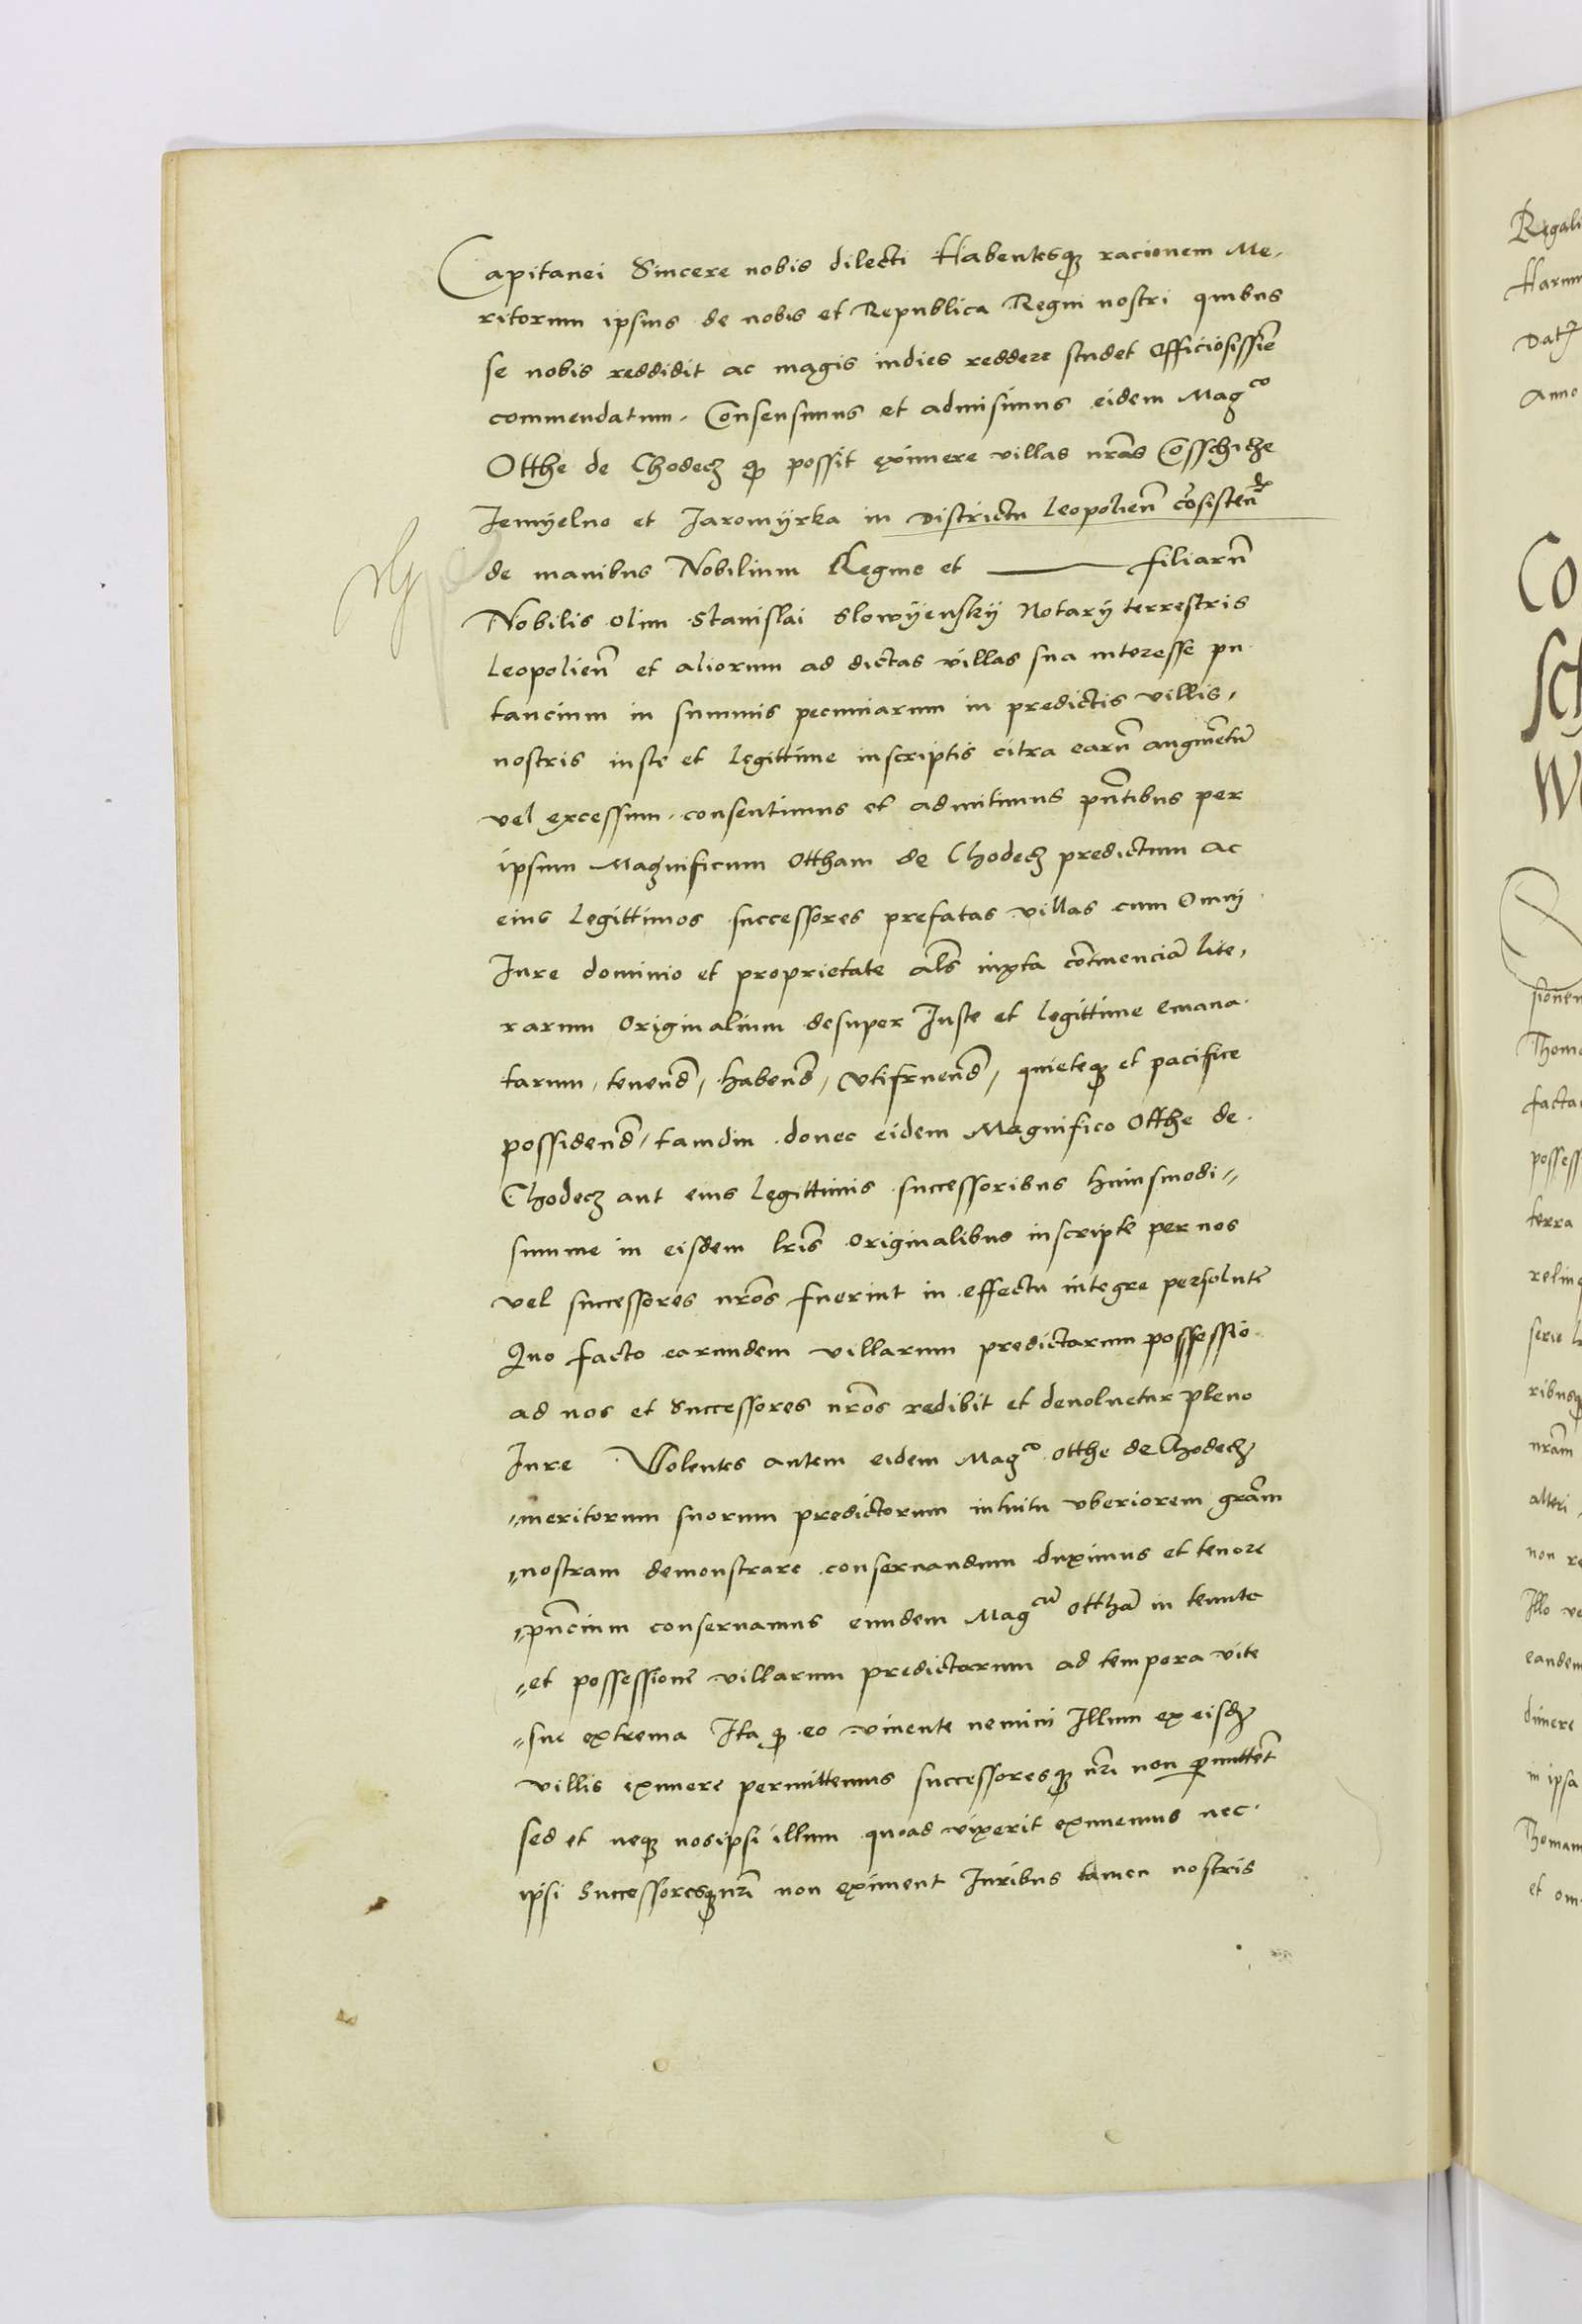 Capitanei Sincere nobis dilecti Habentesq₃ racionem Me,
ritorum ipsius de nobis et Republica Regni nostri quibus
se nobis reddidit ac magis indies reddere studet officiosissie
commendatum, Consensimus et admisimus eidem Mag^co
Otthe de Chodecz q₃ possit eximere villas nras
Jemyelno et Jaromyrka in Districtu leopolien cosisten
de manibus Nobilium Regine et ——— filiaru
Nobilis olim Stanislai Slowyensky Notary terrestris
Leopolien et aliorum ad dictas villas sua interesse pu
tancium in summis pecuniarum in predictis villis,
nostris iuste et legittime inscriptis citra earu augmetu
vel excessum, consentimus et admitimus pntibus per
ipsum Magnificum Ottham de Chodecz predictum ac
eius legittimos successores prefatas villas cum Omni
Iure dominio et proprietate als iuxta cotinencia lite,
rarum originalium desuper Iuste et legittime emana
tarum, tenend, habend, Vtifruend, quieteq₃ et pacifice
possidend, tamdiu donec eidem Magnifico Otthe de
Chodecz aut eius legittimis successoribus huiusmodi"
summe in eisdem lris originalibus inscripte per nos
vel successores nros fuerint in effectu integre persolute
Quo facto earundem villarum predictarum possessio
ad nos et Successores nros redibit et deuoluetur pleno
Iure Volentes autem eidem Mag^co otthe de Chodecz
"meritorum suorum predictorum intuitu vberiorem gram
"nostram demonstrare conseruandum duximus et tenore
"pncium conseruamus eundem Mag^cu ottha in tenute
"et possessione villarum predictarum ad tempora vite
"sue extrema Ita q₃ eo viuente nemini Illum ex eisd₃
villis eximere permittemus successoresq₃ nri non pmittet
sed et neq₃ nosipsi illum quoad vixerit eximemus nec
ipsi Successoresq₃ nri non eximent Iuribus tamen nostris
Regali
Harum
Dat
Anno
Co
sch
W
sionem
Thoma
facta
possess
terra
relinq
serie
ribusq₃
nram
alteri
non re
Illo ve
eandem
dimere
in ipsa
Thomam
et om